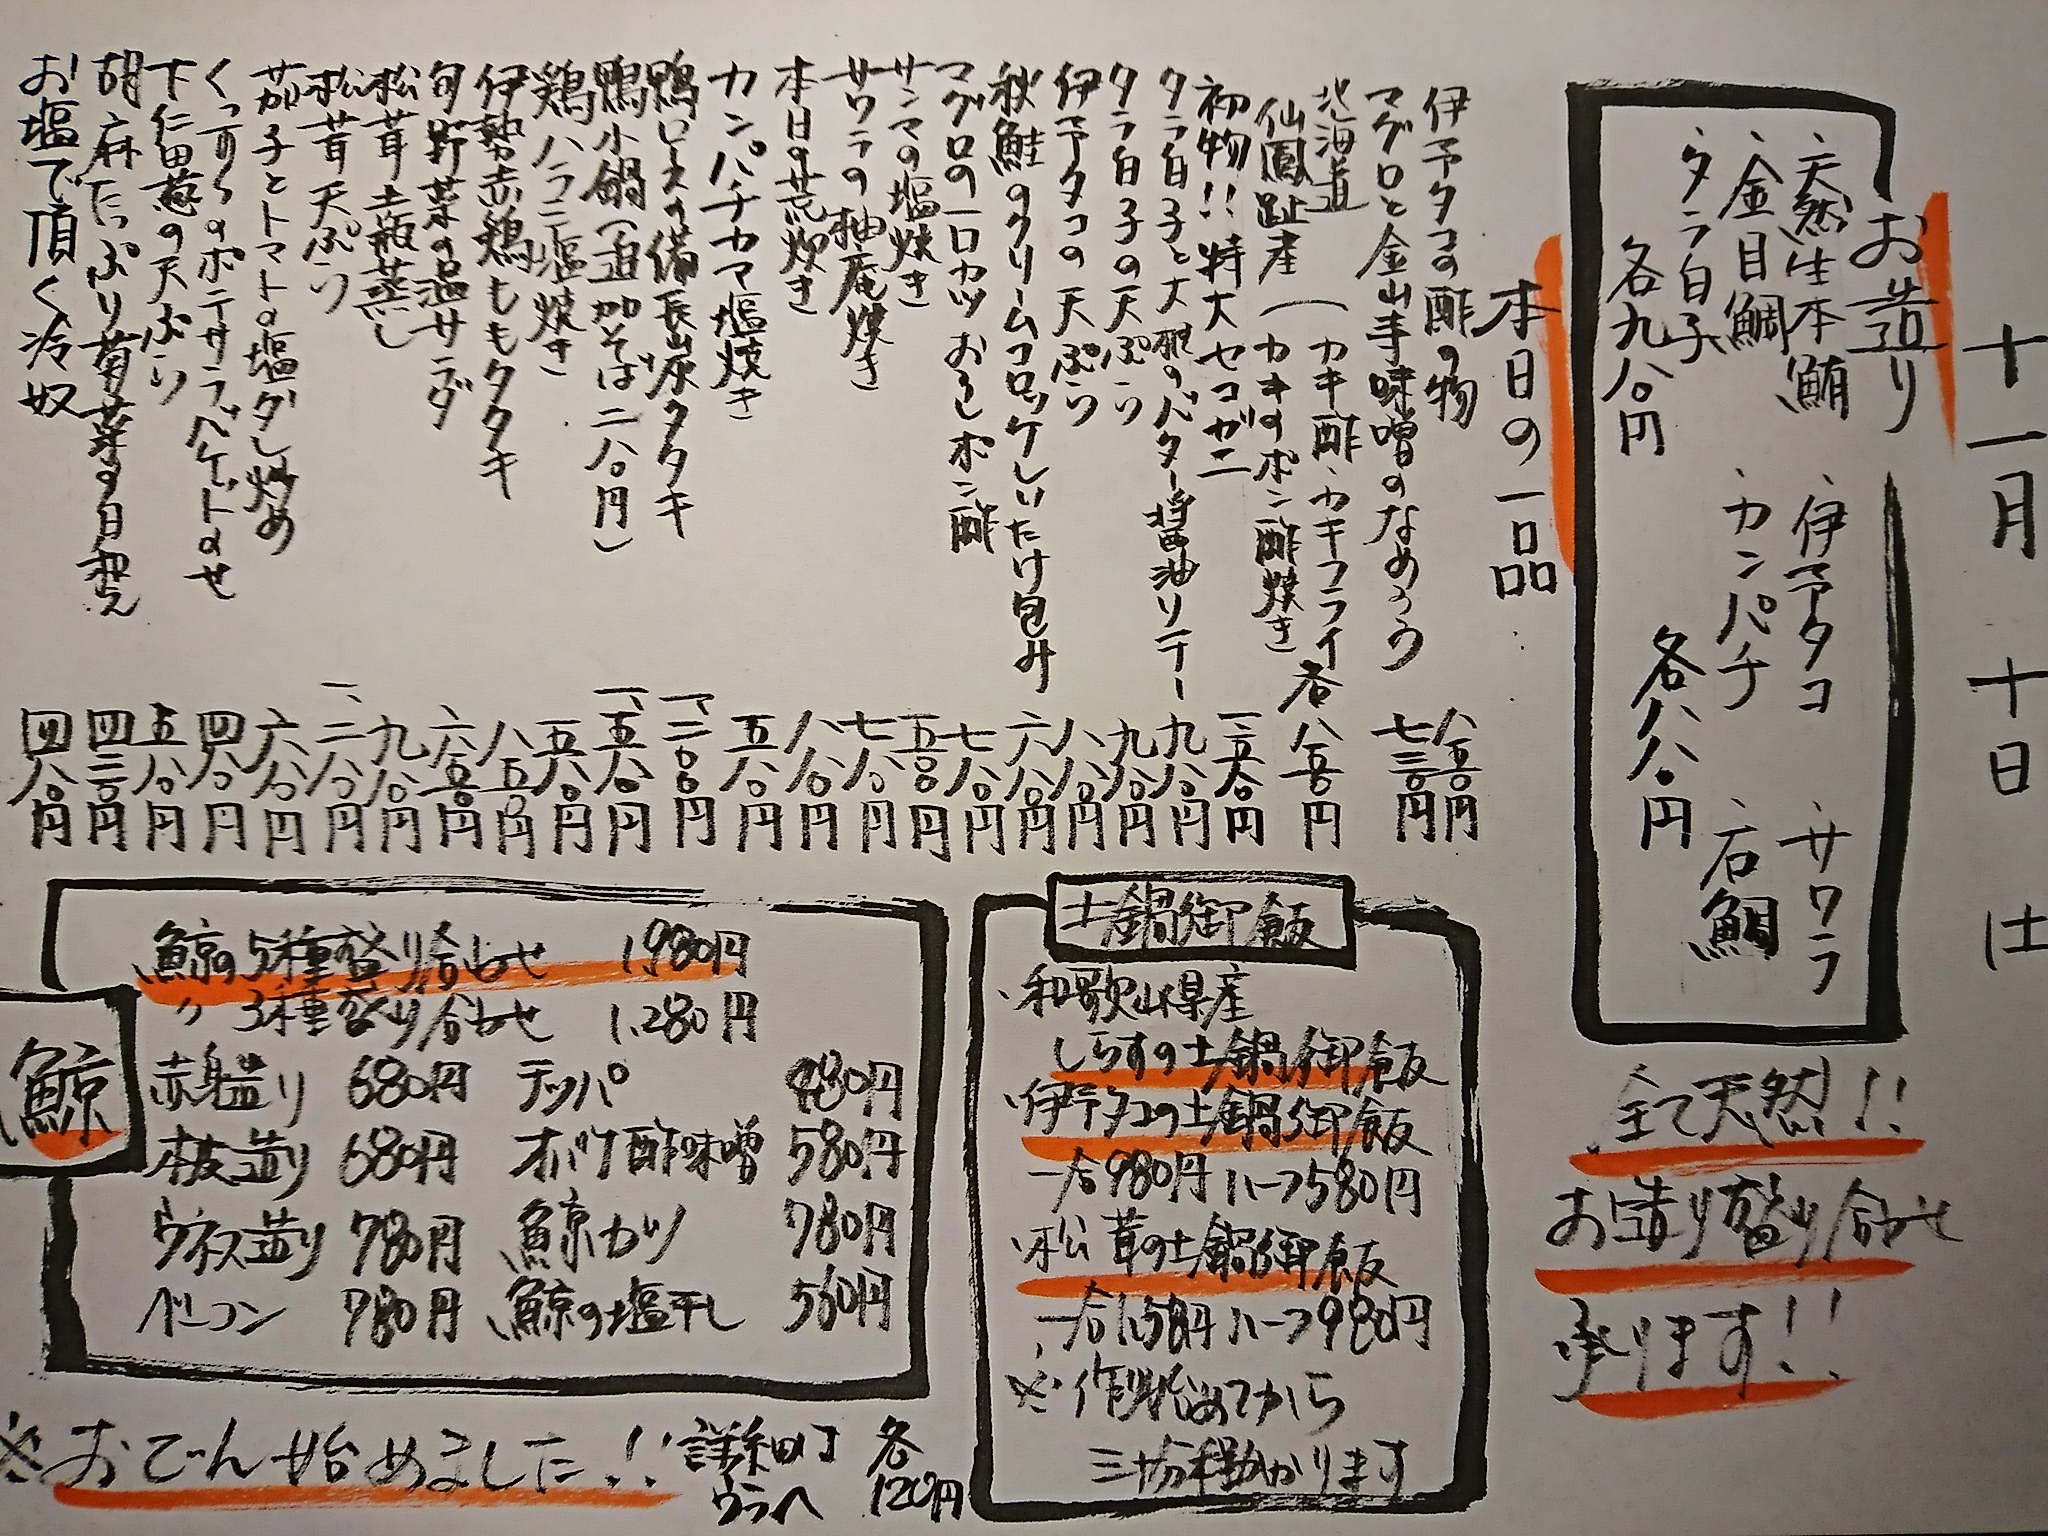 十一月 十日 土
お造り
、天然生本鮪 、伊予タコ 、サワラ
、金目鯛 、カンパチ 、石鯛
、タラ白子
各九八〇円 各八八〇円
全て天然!!
お造り盛り合わせ
承ります!!
本日の一品
伊予タコの酢の物 八五〇円
マグロと金山寺味噌のなめろう 七三〇円
北海道
仙鳳趾産(カキ酢、カキフライ
カキのポン酢焼き 各八五〇円
初物!!特大セコガニ 一、五八〇円
タラ白子と大根のバター醤油ソテー 九八〇円
タラ白子の天ぷら 九八〇円
伊予タコの天ぷら 八八〇円
秋鮭のクリームコロッケしいたけ包み 六八〇円
マグロの一口カツ おろしポン酢 七八〇円
サンマの塩焼き 五五〇円
サワラの柚庵焼き 七八〇円
本日の荒炊き 八八〇円
カンパチカマ塩焼き 五八〇円
鴨ロースの備長炭タタキ 一、二〇〇円
鴨小鍋(追加そば二八〇円) 一、五八〇円
鶏ハラミ塩焼き 五八〇円
伊勢赤鶏ももタタキ 八五〇円
旬野菜の温サラダ 六五〇円
松茸土瓶蒸し 九八〇円
松茸天ぷら 一、二八〇円
茄子とトマトの塩ダレ炒め 六八〇円
くつろぎのポテサラバゲットのせ 四八〇円
下仁田葱の天ぷら 五八〇円
胡麻たっぷり菊菜の白和え 四三〇円
お塩で頂く冷奴 四八〇円
土鍋御飯
、和歌山県産
しらすの土鍋御飯
、伊予タコの土鍋御飯
一合980円 ハーフ580円
、松茸の土鍋御飯
一合1,580円 ハーフ980円
※作り始めてから
三十分程掛かります
鯨
鯨の5種盛り合わせ 1,980円
〃 3種盛り合わせ 1,280円
赤身造り 680円 テッパ 880円
本皮造り 680円 オバケ酢味噌 580円
ウネス造り 780円 鯨カツ 780円
ベーコン 780円 鯨の塩干し 560円
※おでん始めました!! 詳細は
ウラへ
各
120円